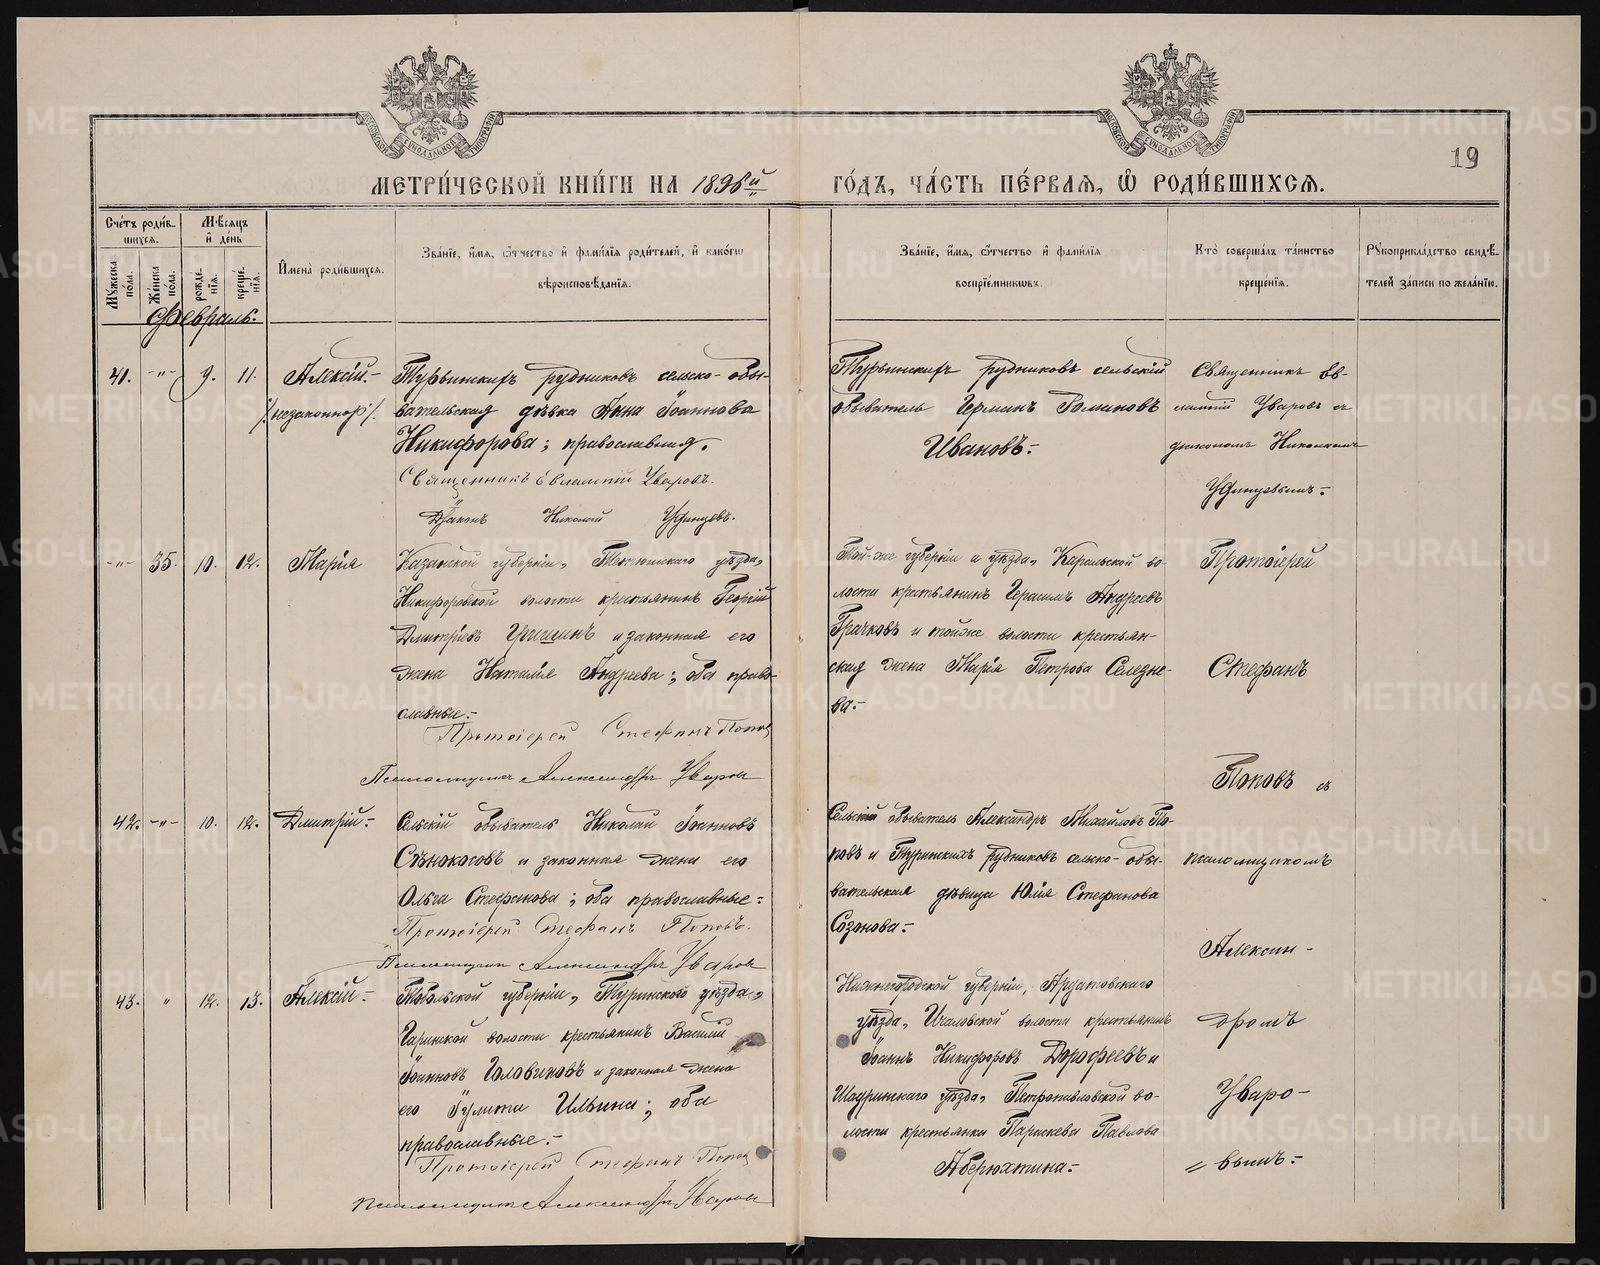 МОСКОВСКОЙ СѴНОДАЛЬНОЙ ТИПОГРАФІИ
МОСКОВСКОЙ СѴНОДАЛЬНОЙ ТИПОГРАФІИ
19
МЕТРИ́ЧЕСКОЙ КНИ́ГИ НА 1898й ГО́ДЪ, ЧА́СТЬ ПЕ́РВАЯ, Ѡ РОДИ́ВШИХСЯ.
Сче́тъ роди́в-
шихся.
Мѣ́сяцъ
и де́нь
Мꙋ́жеска
пола.
Же́нска
пола.
рожде́-
нія.
креще́-
нія.
И́мена̀ роди́вшихся.
Зва́ніе, и́мя, ѻ҆́тчество и фами́лія роди́телей, и како́гѡ
вѣроисповѣ́данія.
Зва́ніе, и́мя, ѻ҆́тчество и фами́лія
воспріе́мниковъ.
Кто̀ соверша́лъ та́инство
креще́нія.
Рꙋкоприкла́дство свидѣ́-
телей за́писи по жела́нію.
Февраль.
41. -"- 9. 11. Алексій.-
/незаконнор/.
Турьинскихъ рудниковъ сельско-обы-
вательская дѣвка Анна Іоаннова
Никифорова; православная.
Священникъ Евлампій Уваровъ.
Діаконъ Николай Удинцевъ.
Турьинскихъ рудниковъ сельскій
обыватель Германъ Романовъ
Ивановъ.-
Священникъ Ев-
лампій Уваровъ съ
діакономъ Николаемъ
Удинцевымъ.-
-"- 35. 10. 12. Марія
Казанской губерніи, Тетюшскаго уѣзда,
Никифоровской волости крестьянинъ Георгій
Дмитріевъ и законная его
жена Наталія Андреева; оба право-
славные.-
Протоіерей Стефанъ Попов
Псаломщикъ Александръ Уваров
Той-же губерніи и уѣзда, волости крестьянинъ Герасимъ Андреевъ
Грачковъ и тойже волости крестьян-
ская жена Марія Петрова Селезне-
ва.-
Протоіерей
Стефанъ
Поповъ съ
42. -"- 10. 12. Дмитрій.-
Сельскій обыватель Николай Іоанновъ
Сѣнокосовъ и законная жена его
Ольга Стефанова; оба православные.-
Протоіерей Стефанъ Поповъ.
Псаломщикъ Александръ Уваров
Сельскій обыватель Александръ Михайловъ По-
повъ и Турьинскихъ рудниковъ сельско-обы-
вательская дѣвица Юлія Стефанова
Созонова.-
псаломщикомъ
Алексан-
43. " 12. 13. Алексій.-
Тобольской губерніи, Туринскаго уѣзда,
Гаринской волости крестьянинъ Василій
Іоанновъ Головиновъ и законная жена
его Іулита Ильина; оба
православные.-
Протоіерей Стефанъ Попов
псаломщикъ Александръ Уваров
Нижнегородской губерніи, Ардатовскаго
уѣзда, волости крестьянинъ
Іоаннъ Никифоровъ Дорофеевъ и
Шадринскаго уѣзда, Петропавловской во-
лости крестьянка Параскева Павлова
Аберюхтина.-
дромъ
Уваро-
= вымъ.-
METRIKI.GASO-URAL.RU